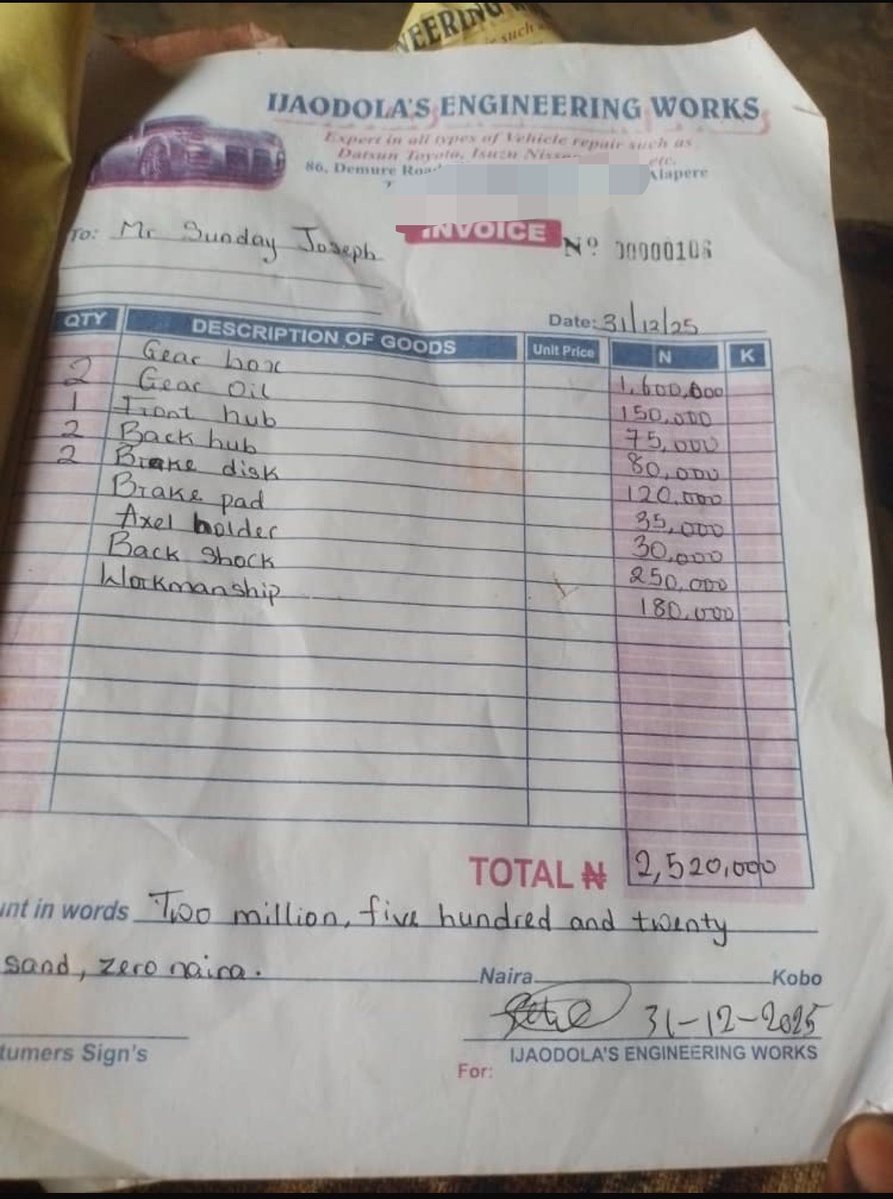 NEERING W
is such a
IJAODOLA'S ENGINEERING WORKS
Expert in all types of Vehicle repair such as
Datsun Toyota, Isuzu Nissan etc.
86, Demure Road Alapere
INVOICE
Nº 00000106
To: Mr Sunday Joseph
Date: 31/12/25
QTY DESCRIPTION OF GOODS Unit Price N K
Gear box 1,600,000
2 Gear Oil 150,000
1 Front hub 75,000
2 Back hub 80,000
2 Brake disk 120,000
Brake pad 35,000
Axel holder 30,000
Back shock 250,000
Workmanship 180,000
TOTAL ₦ 2,520,000
unt in words Two million, five hundred and twenty
sand, zero naira. Naira Kobo
31-12-2025
tumers Sign's
For: IJAODOLA'S ENGINEERING WORKS